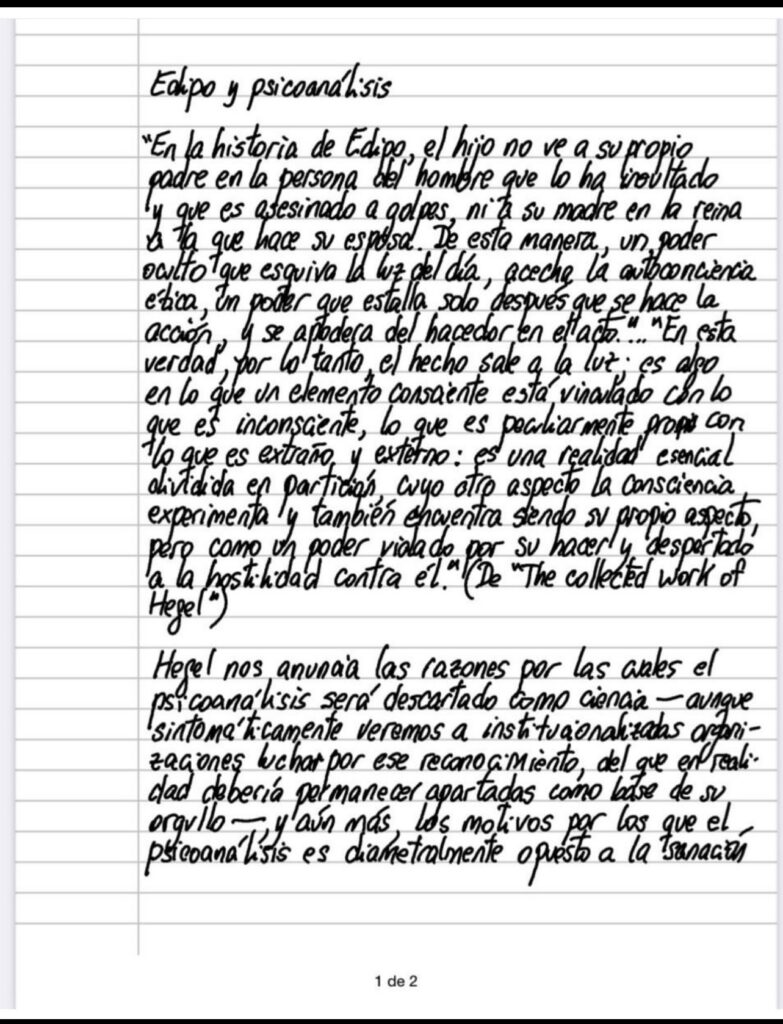 Edipo y psicoanálisis
"En la historia de Edipo, el hijo no ve a su propio
padre en la persona del hombre que lo ha insultado
y que es asesinado a golpes, ni a su madre en la reina
a la que hace su esposa. De esta manera, un poder
oculto que esquiva la luz del día, acecha la autoconciencia
ética, un poder que estalla solo después que se hace la
acción, y se apodera del hacedor en el acto."... "En esta
verdad, por lo tanto, el hecho sale a la luz; es algo
en lo que un elemento consciente está vinculado con lo
que es inconsciente, lo que es peculiarmente propio con
lo que es extraño y externo: es una realidad esencial
dividida en partición, cuyo otro aspecto la consciencia
experimenta y también encuentra siendo su propio aspecto,
pero como un poder violado por su hacer y despertado
a la hostilidad contra él." (De "The collected work of
Hegel")
Hegel nos anuncia las razones por las cuales el
psicoanálisis será descartado como ciencia — aunque
sintomáticamente veremos a institucionalizadas organi-
zaciones luchar por ese reconocimiento, del que en reali-
dad debería permanecer apartadas como base de su
orgullo —, y aún más, los motivos por los que el
psicoanálisis es diametralmente opuesto a la "sanación
1 de 2